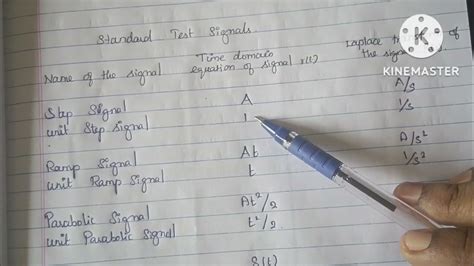 Standard Test Signals
Name of the signal Time domain equation of signal r(t) Laplace of the signal
Step Signal A A/s
unit Step Signal 1 1/s
Ramp Signal At A/s²
unit Ramp Signal t 1/s²
Parabolic Signal At²/2
unit Parabolic Signal t²/2
δ(t)
KINEMASTER